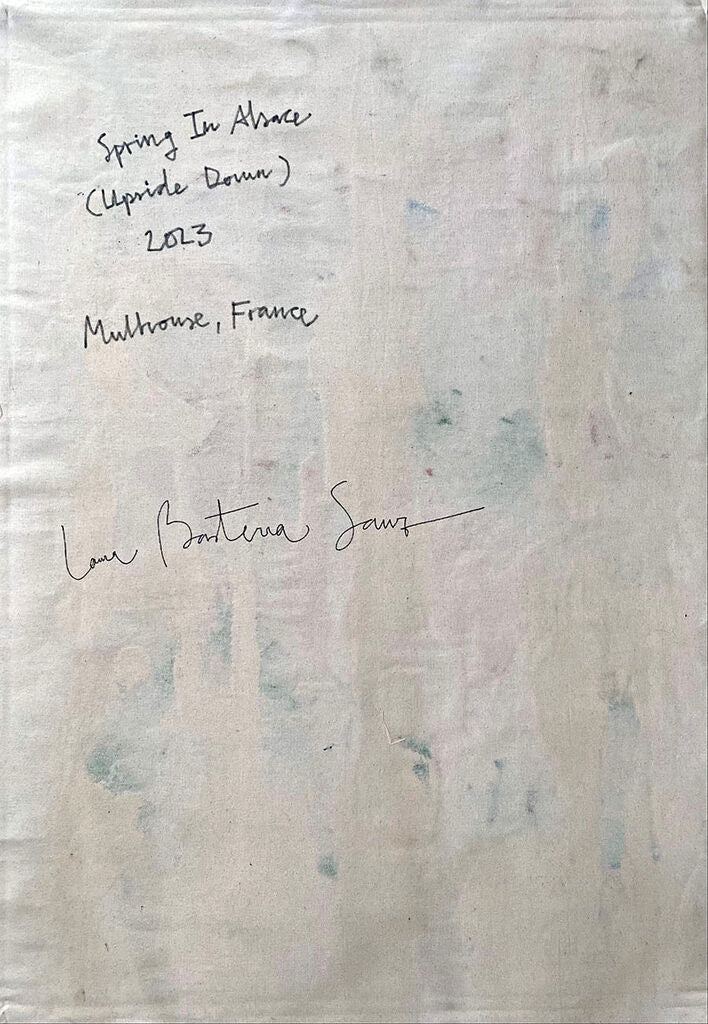 Spring In Alsace
(Upside Down)
2023
Mulhouse, France
Laura Basterra Sanz